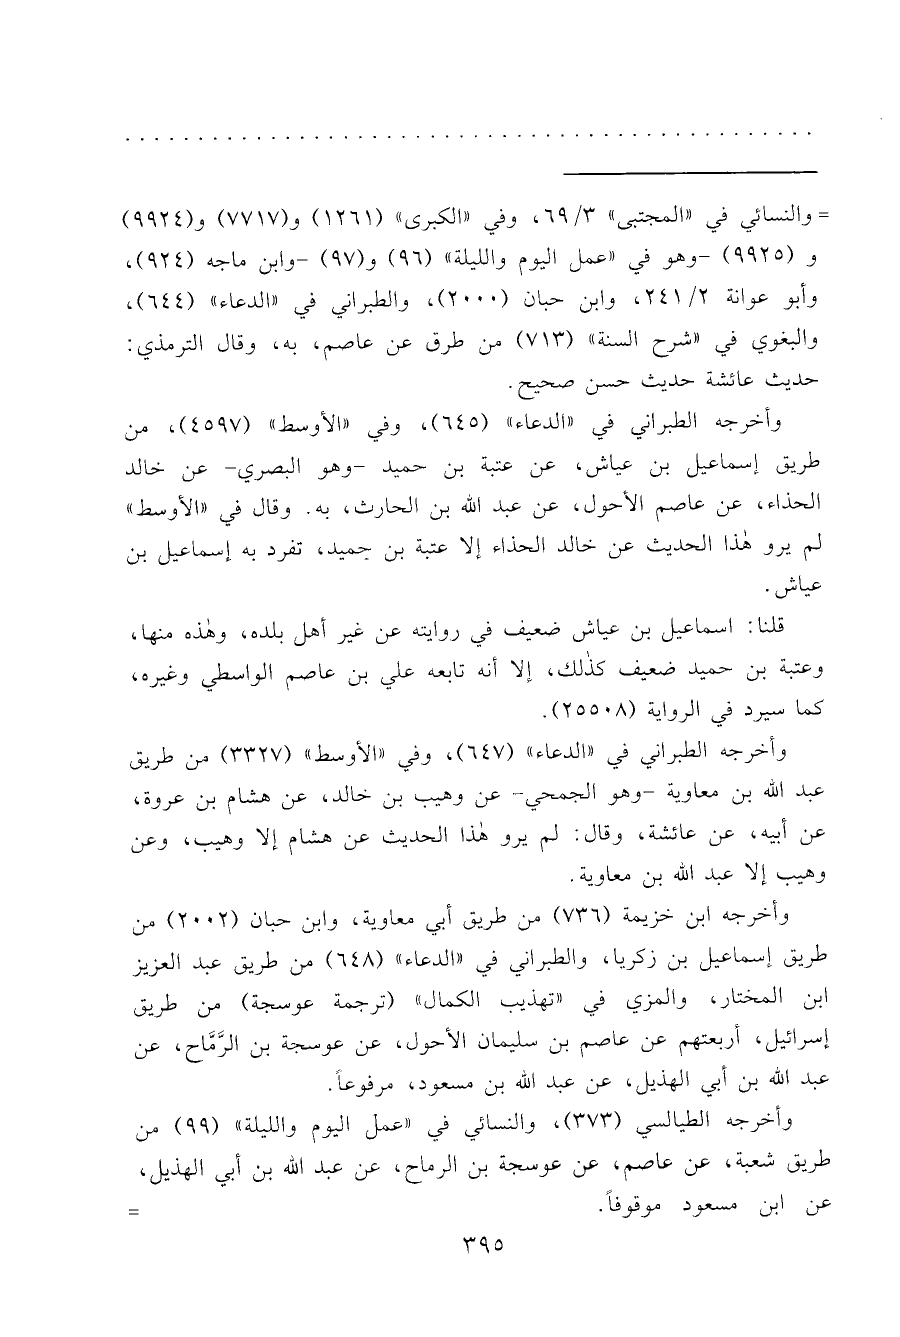 = والنسائي في «المجتبى» ٦٩/٣، وفي «الكبرى» (١٢٦١) و(٧٧١٧) و(٩٩٢٤)
و (٩٩٢٥) -وهو في «عمل اليوم والليلة» (٩٦) و(٩٧) -وابن ماجه (٩٢٤)،
وأبو عوانة ٢٤١/٢، وابن حبان (٢٠٠٠)، والطبراني في «الدعاء» (٦٤٤)،
والبغوي في «شرح السنة» (٧١٣) من طرق عن عاصم، به، وقال الترمذي:
حديث عائشة حديث حسن صحيح.
وأخرجه الطبراني في «الدعاء» (٦٤٥)، وفي «الأوسط» (٤٥٩٧)، من
طريق إسماعيل بن عياش، عن عتبة بن حميد -وهو البصري- عن خالد
الحذاء، عن عاصم الأحول، عن عبد الله بن الحارث، به. وقال في «الأوسط»
لم يرو هٰذا الحديث عن خالد الحذاء إلا عتبة بن حميد، تفرد به إسماعيل بن
عياش.
قلنا: اسماعيل بن عياش ضعيف في روايته عن غير أهل بلده، وهٰذه منها،
وعتبة بن حميد ضعيف كذٰلك، إلا أنه تابعه علي بن عاصم الواسطي وغيره،
كما سيرد في الرواية (٢٥٥٠٨).
وأخرجه الطبراني في «الدعاء» (٦٤٧)، وفي «الأوسط» (٣٣٢٧) من طريق
عبد الله بن معاوية -وهو الجمحي- عن وهيب بن خالد، عن هشام بن عروة،
عن أبيه، عن عائشة، وقال: لم يرو هٰذا الحديث عن هشام إلا وهيب، وعن
وهيب إلا عبد الله بن معاوية.
وأخرجه ابن خزيمة (٧٣٦) من طريق أبي معاوية، وابن حبان (٢٠٠٢) من
طريق إسماعيل بن زكريا، والطبراني في «الدعاء» (٦٤٨) من طريق عبد العزيز
ابن المختار، والمزي في «تهذيب الكمال» (ترجمة عوسجة) من طريق
إسرائيل، أربعتهم عن عاصم بن سليمان الأحول، عن عوسجة بن الرَّمَّاح، عن
عبد الله بن أبي الهذيل، عن عبد الله بن مسعود، مرفوعاً.
وأخرجه الطيالسي (٣٧٣)، والنسائي في «عمل اليوم والليلة» (٩٩) من
طريق شعبة، عن عاصم، عن عوسجة بن الرماح، عن عبد الله بن أبي الهذيل،
عن ابن مسعود موقوفاً. =
٣٩٥